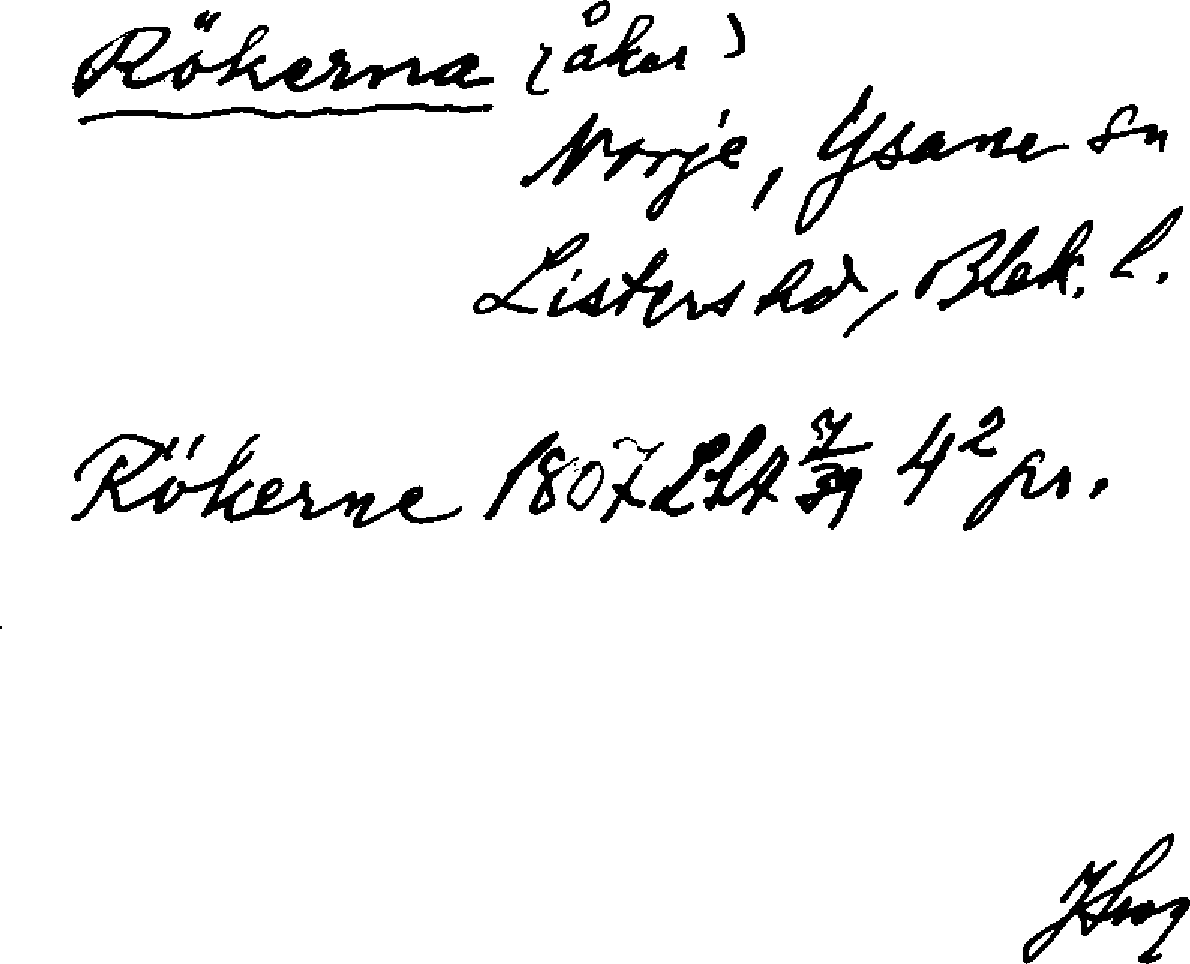 Rökerna (åker)
Norje, Ysane sn
Listers hd, Blek. l.
Rökerne 1807 LHA 7/39 4² pr.